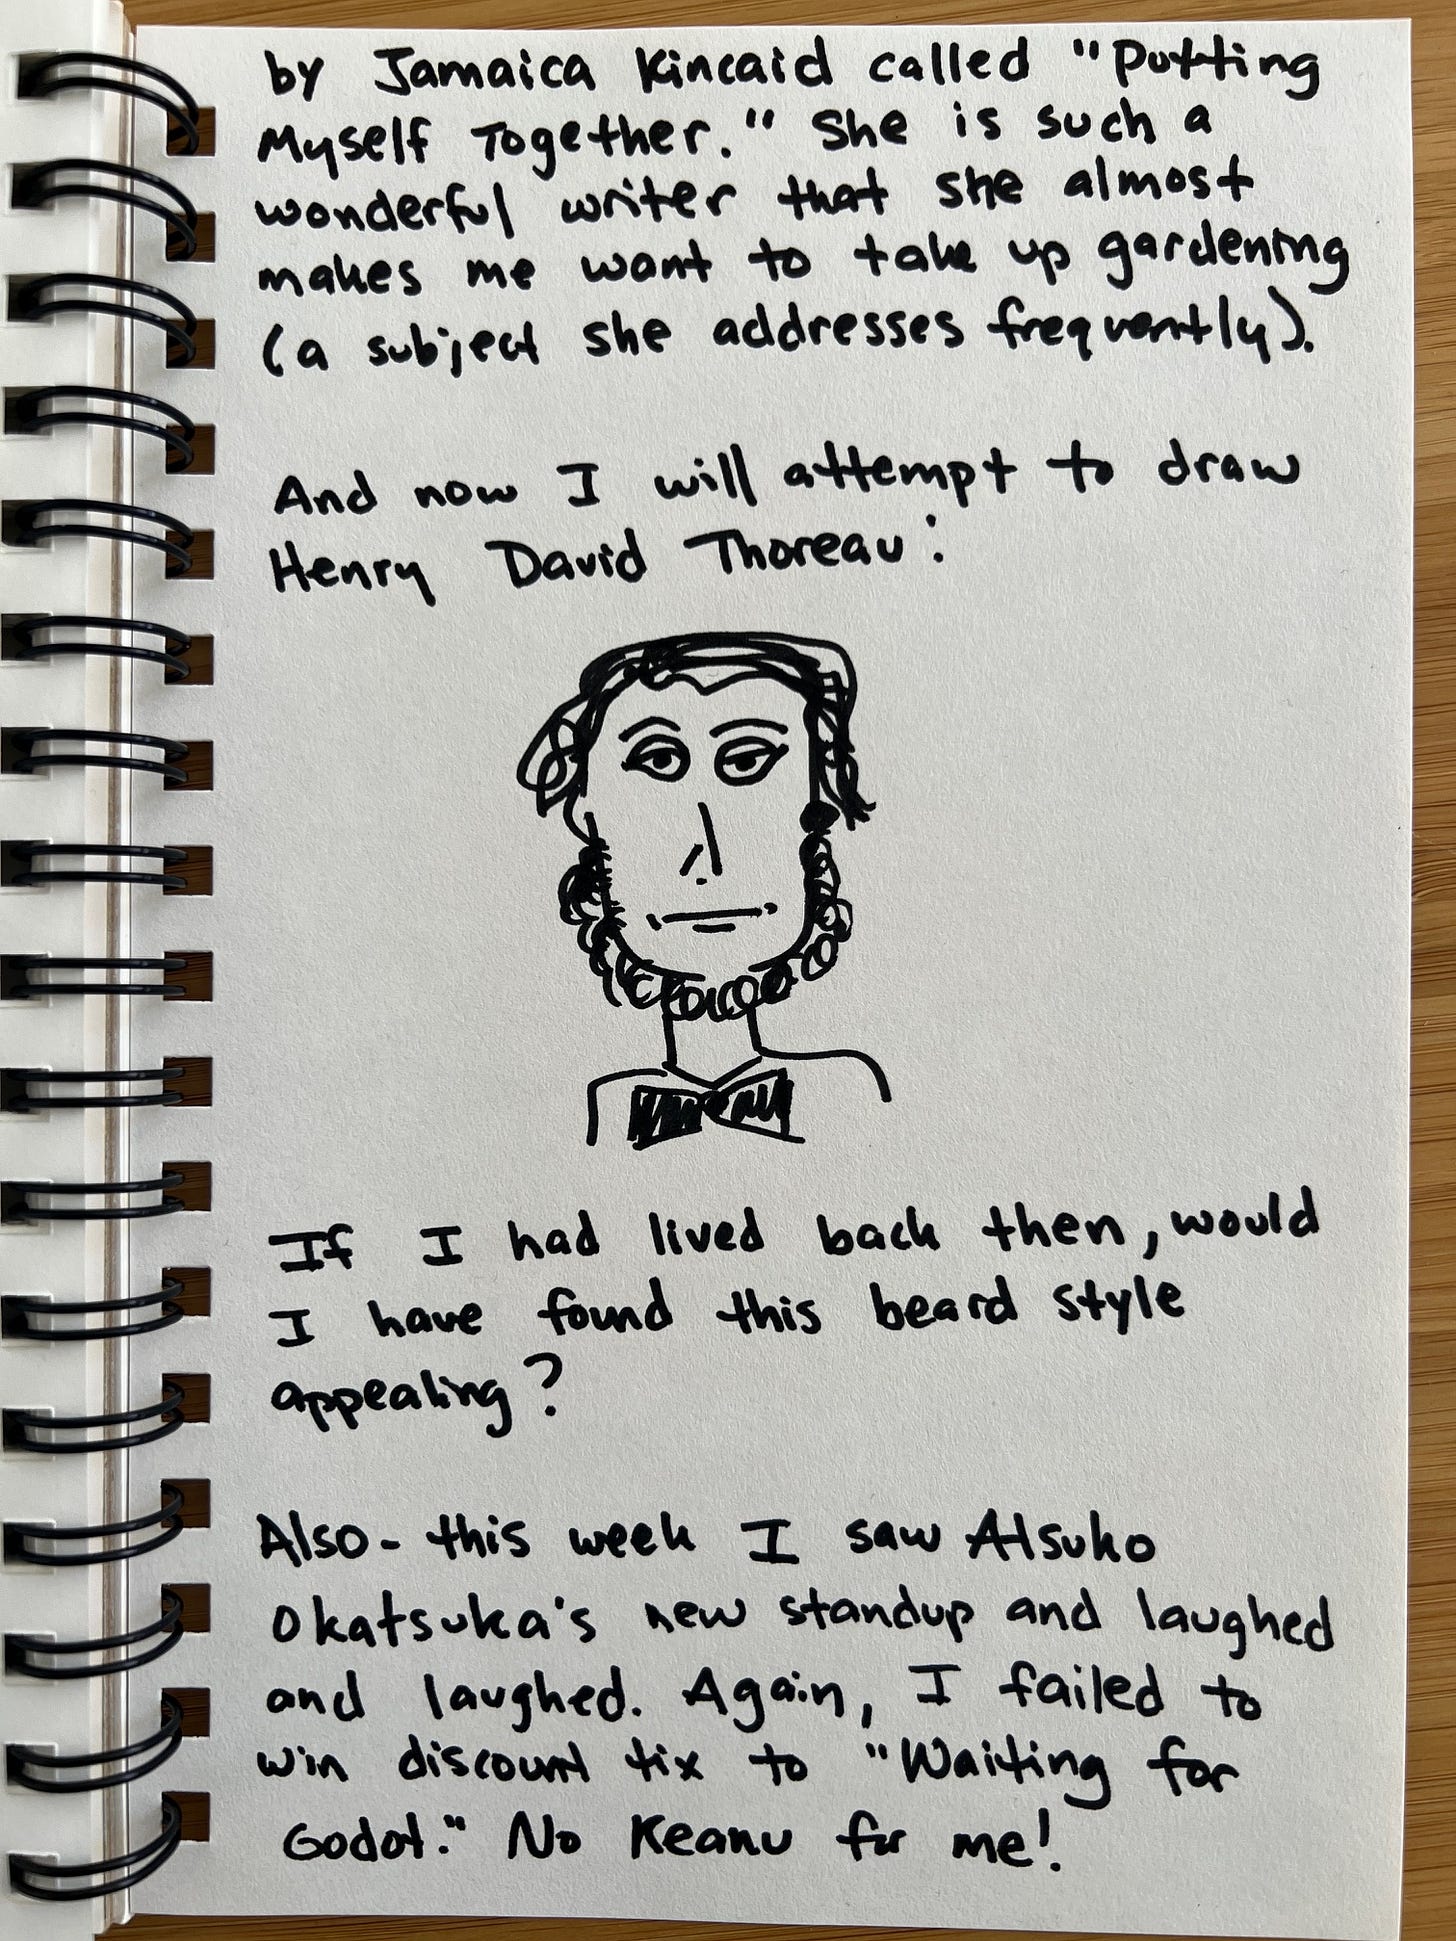 by Jamaica Kincaid called "Putting
Myself Together." She is such a
wonderful writer that she almost
makes me want to take up gardening
(a subject she addresses frequently).
And now I will attempt to draw
Henry David Thoreau:
If I had lived back then, would
I have found this beard style
appealing?
Also - this week I saw Atsuko
Okatsuka's new standup and laughed
and laughed. Again, I failed to
win discount tix to "Waiting for
Godot." No Keanu for me!